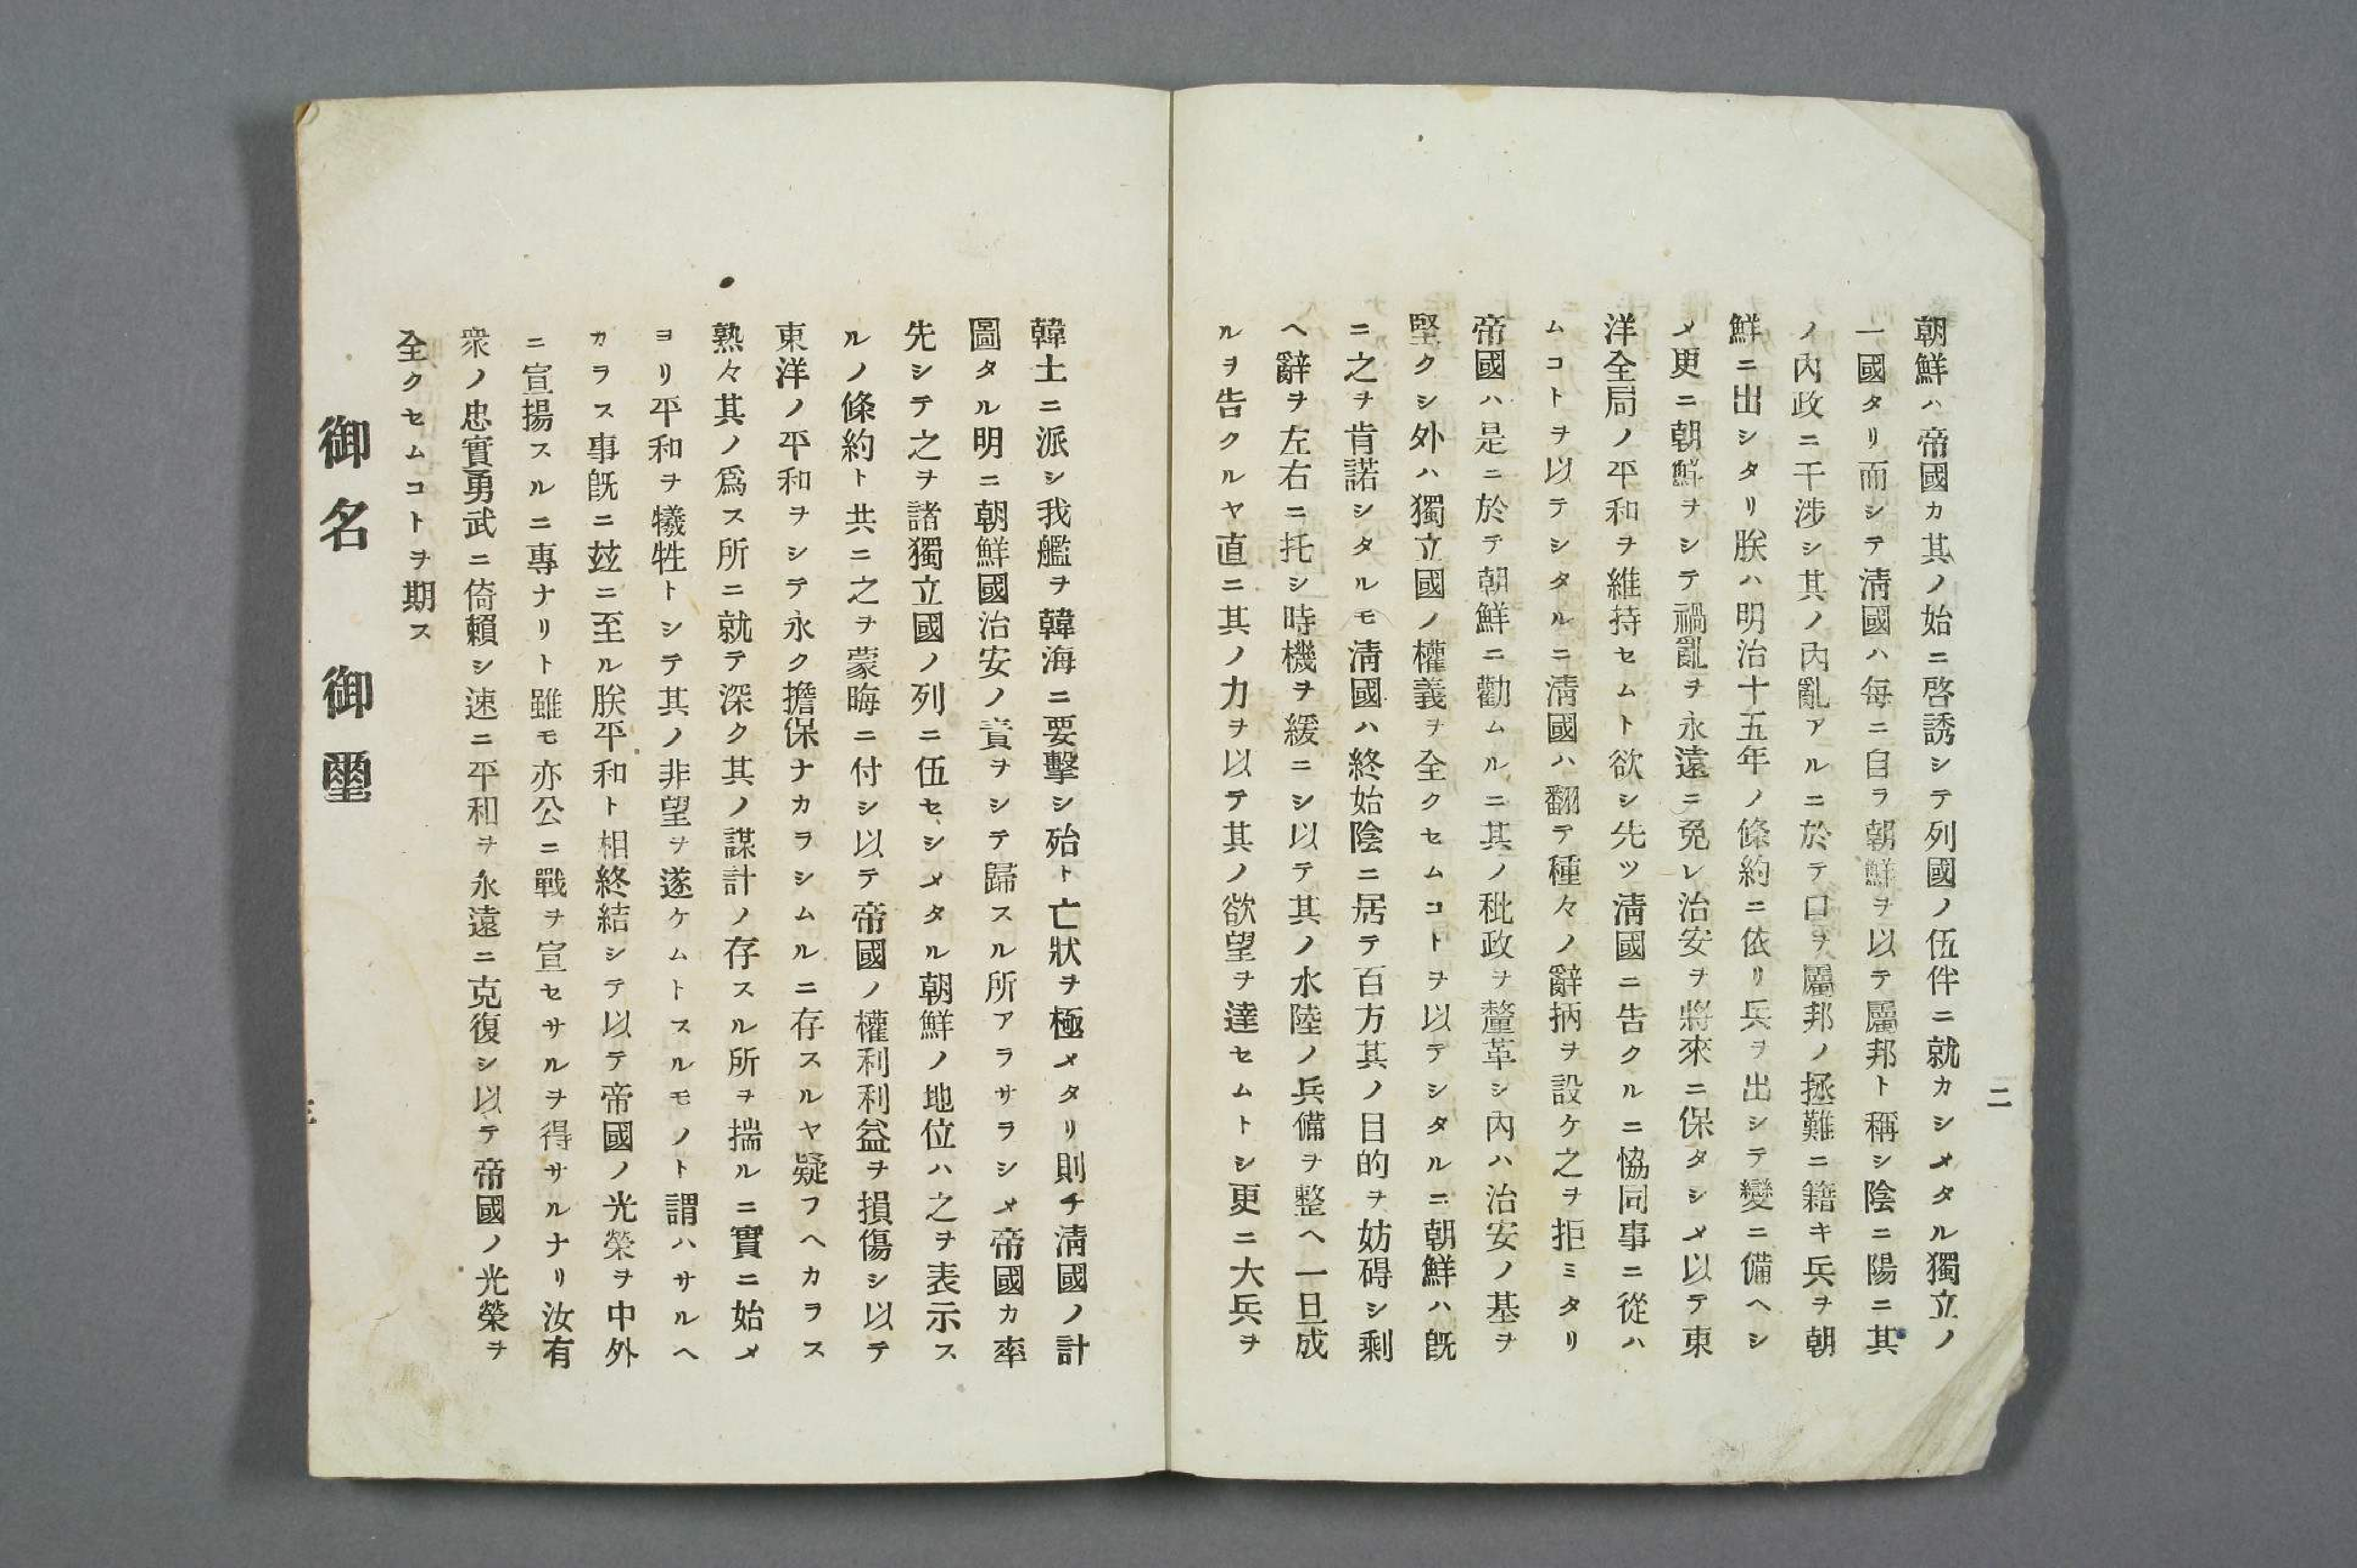 二
朝鮮ハ帝國カ其ノ始ニ啓誘シテ列國ノ伍伴ニ就カシメタル獨立ノ
一國タリ而シテ淸國ハ每ニ自ラ朝鮮ヲ以テ屬邦ト稱シ陰ニ陽ニ其
ノ內政ニ干涉シ其ノ內亂アルニ於テ口ヲ屬邦ノ拯難ニ籍キ兵ヲ朝
鮮ニ出シタリ朕ハ明治十五年ノ條約ニ依リ兵ヲ出シテ變ニ備ヘシ
メ更ニ朝鮮ヲシテ禍亂ヲ永遠ニ免レ治安ヲ將來ニ保タシメ以テ東
洋全局ノ平和ヲ維持セムト欲シ先ツ淸國ニ告クルニ恊同事ニ從ハ
ムコトヲ以テシタルニ淸國ハ翻テ種々ノ辭柄ヲ設ケ之ヲ拒ミタリ
帝國ハ是ニ於テ朝鮮ニ勸ムルニ其ノ秕政ヲ釐革シ內ハ治安ノ基ヲ
堅クシ外ハ獨立國ノ權義ヲ全クセムコトヲ以テシタルニ朝鮮ハ旣
ニ之ヲ肯諾シタルモ淸國ハ終始陰ニ居テ百方其ノ目的ヲ妨碍シ剩
ヘ辭ヲ左右ニ托シ時機ヲ緩ニシ以テ其ノ水陸ノ兵備ヲ整ヘ一旦成
ルヲ告クルヤ直ニ其ノ力ヲ以テ其ノ欲望ヲ達セムトシ更ニ大兵ヲ
韓土ニ派シ我艦ヲ韓海ニ要擊シ殆ト亡狀ヲ極メタリ則チ淸國ノ計
圖タル明ニ朝鮮國治安ノ責ヲシテ歸スル所アラサラシメ帝國カ率
先シテ之ヲ諸獨立國ノ列ニ伍セシメタル朝鮮ノ地位ハ之ヲ表示ス
ルノ條約ト共ニ之ヲ蒙晦ニ付シ以テ帝國ノ權利利益ヲ損傷シ以テ
東洋ノ平和ヲシテ永ク擔保ナカラシムルニ存スルヤ疑フヘカラス
熟々其ノ爲ス所ニ就テ深ク其ノ謀計ノ存スル所ヲ揣ルニ實ニ始メ
ヨリ平和ヲ犧牲トシテ其ノ非望ヲ遂ケムトスルモノト謂ハサルヘ
カラス事旣ニ玆ニ至ル朕平和ト相終結シテ以テ帝國ノ光榮ヲ中外
ニ宣揚スルニ專ナリト雖モ亦公ニ戰ヲ宣セサルヲ得サルナリ汝有
衆ノ忠實勇武ニ倚賴シ速ニ平和ヲ永遠ニ克復シ以テ帝國ノ光榮ヲ
全クセムコトヲ期ス
御名　御璽